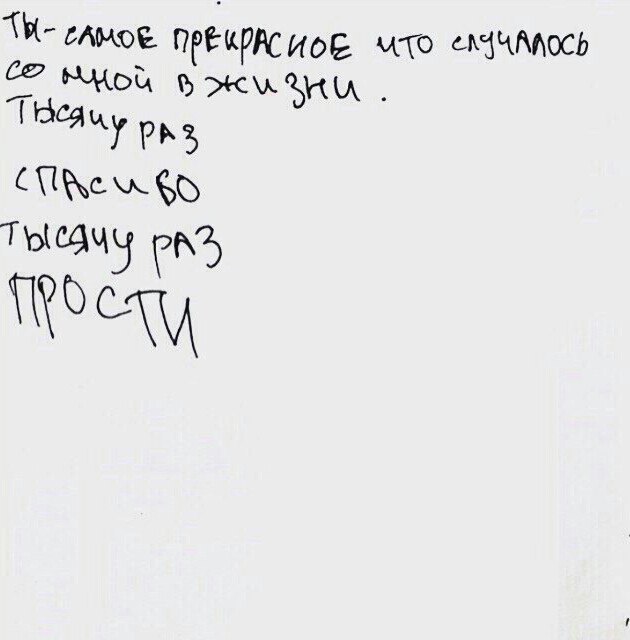 ты - самое прекрасное что случалось
со мной в жизни.
Тысячу раз
спасибо
тысячу раз
ПРОСТИ